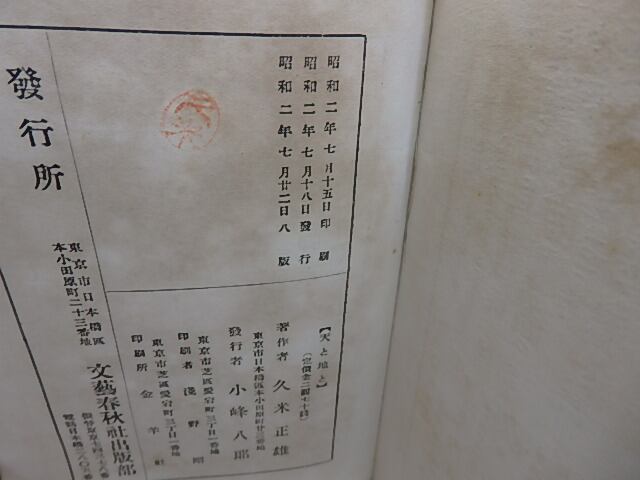 昭和二年七月十五日印刷
昭和二年七月十八日發行
昭和二年七月廿二日八版
【天と地と】
(定價金二圓七十錢)
著作者 久米正雄
東京市日本橋區本小田原町廿三番地
發行者 小峰八郎
東京市芝區愛宕町三丁目一番地
印刷者 淺野
東京市芝區愛宕町三丁目一番地
印刷所 金羊社
發行所
東京市日本橋區
本小田原町二十三番地
文藝春秋社出版部